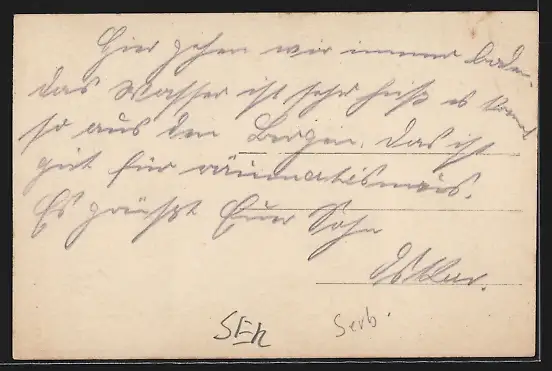 Hier gehen wir immer baden.
das Wasser ist sehr heiß es kommt
so aus den Bergen. das ist
gut für räumatismus.
Es grüßt Euer Sohn
Oskar.
SEh
Serb.